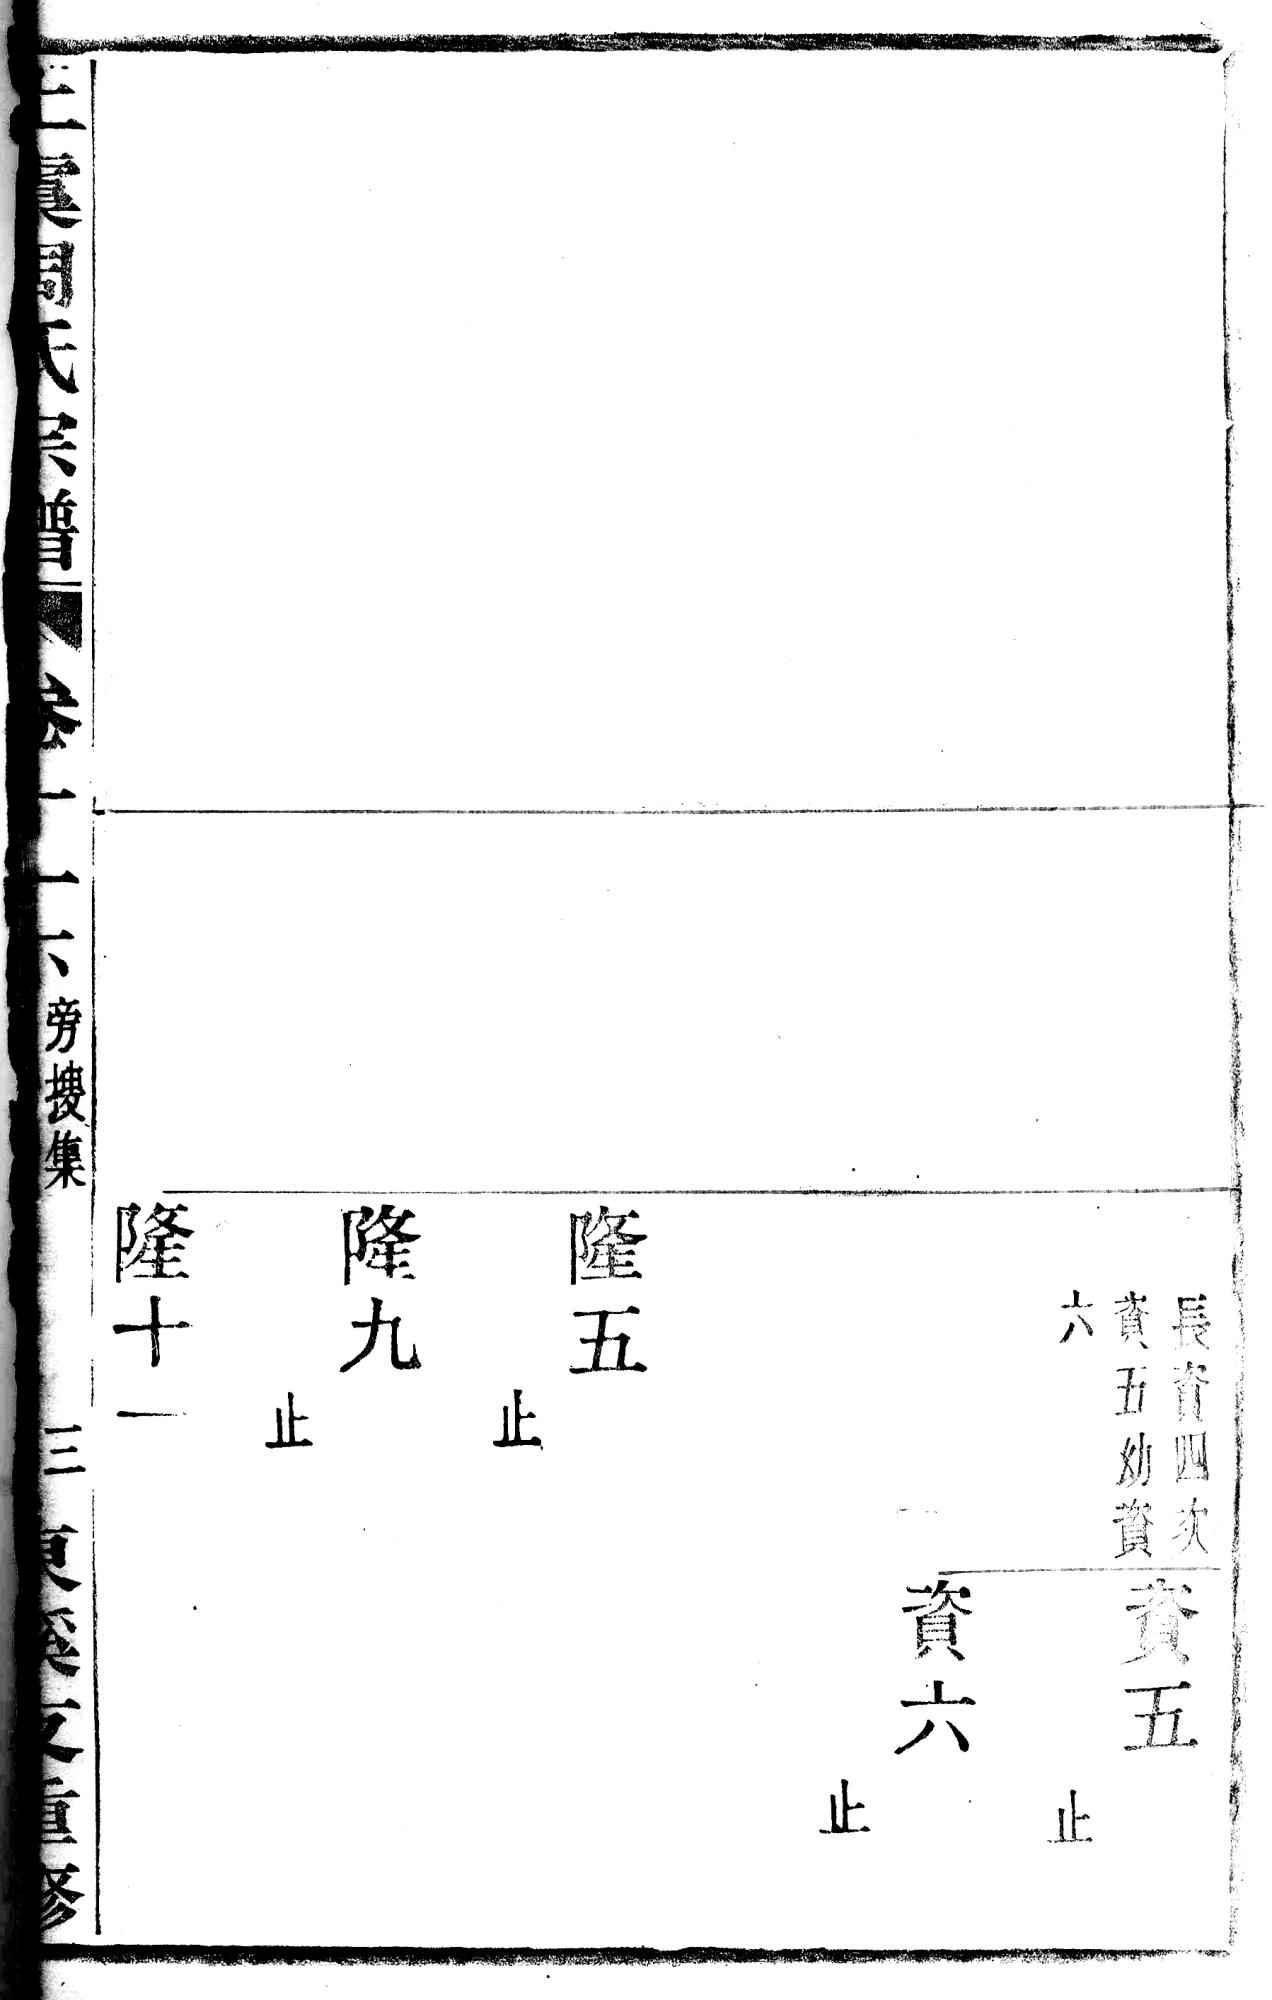 長資四次
資五幼資
六
資五
止
資六
止
隆五
止
隆九
止
隆十一
虞周氏宗譜
卷
六
旁搜集
三
重修